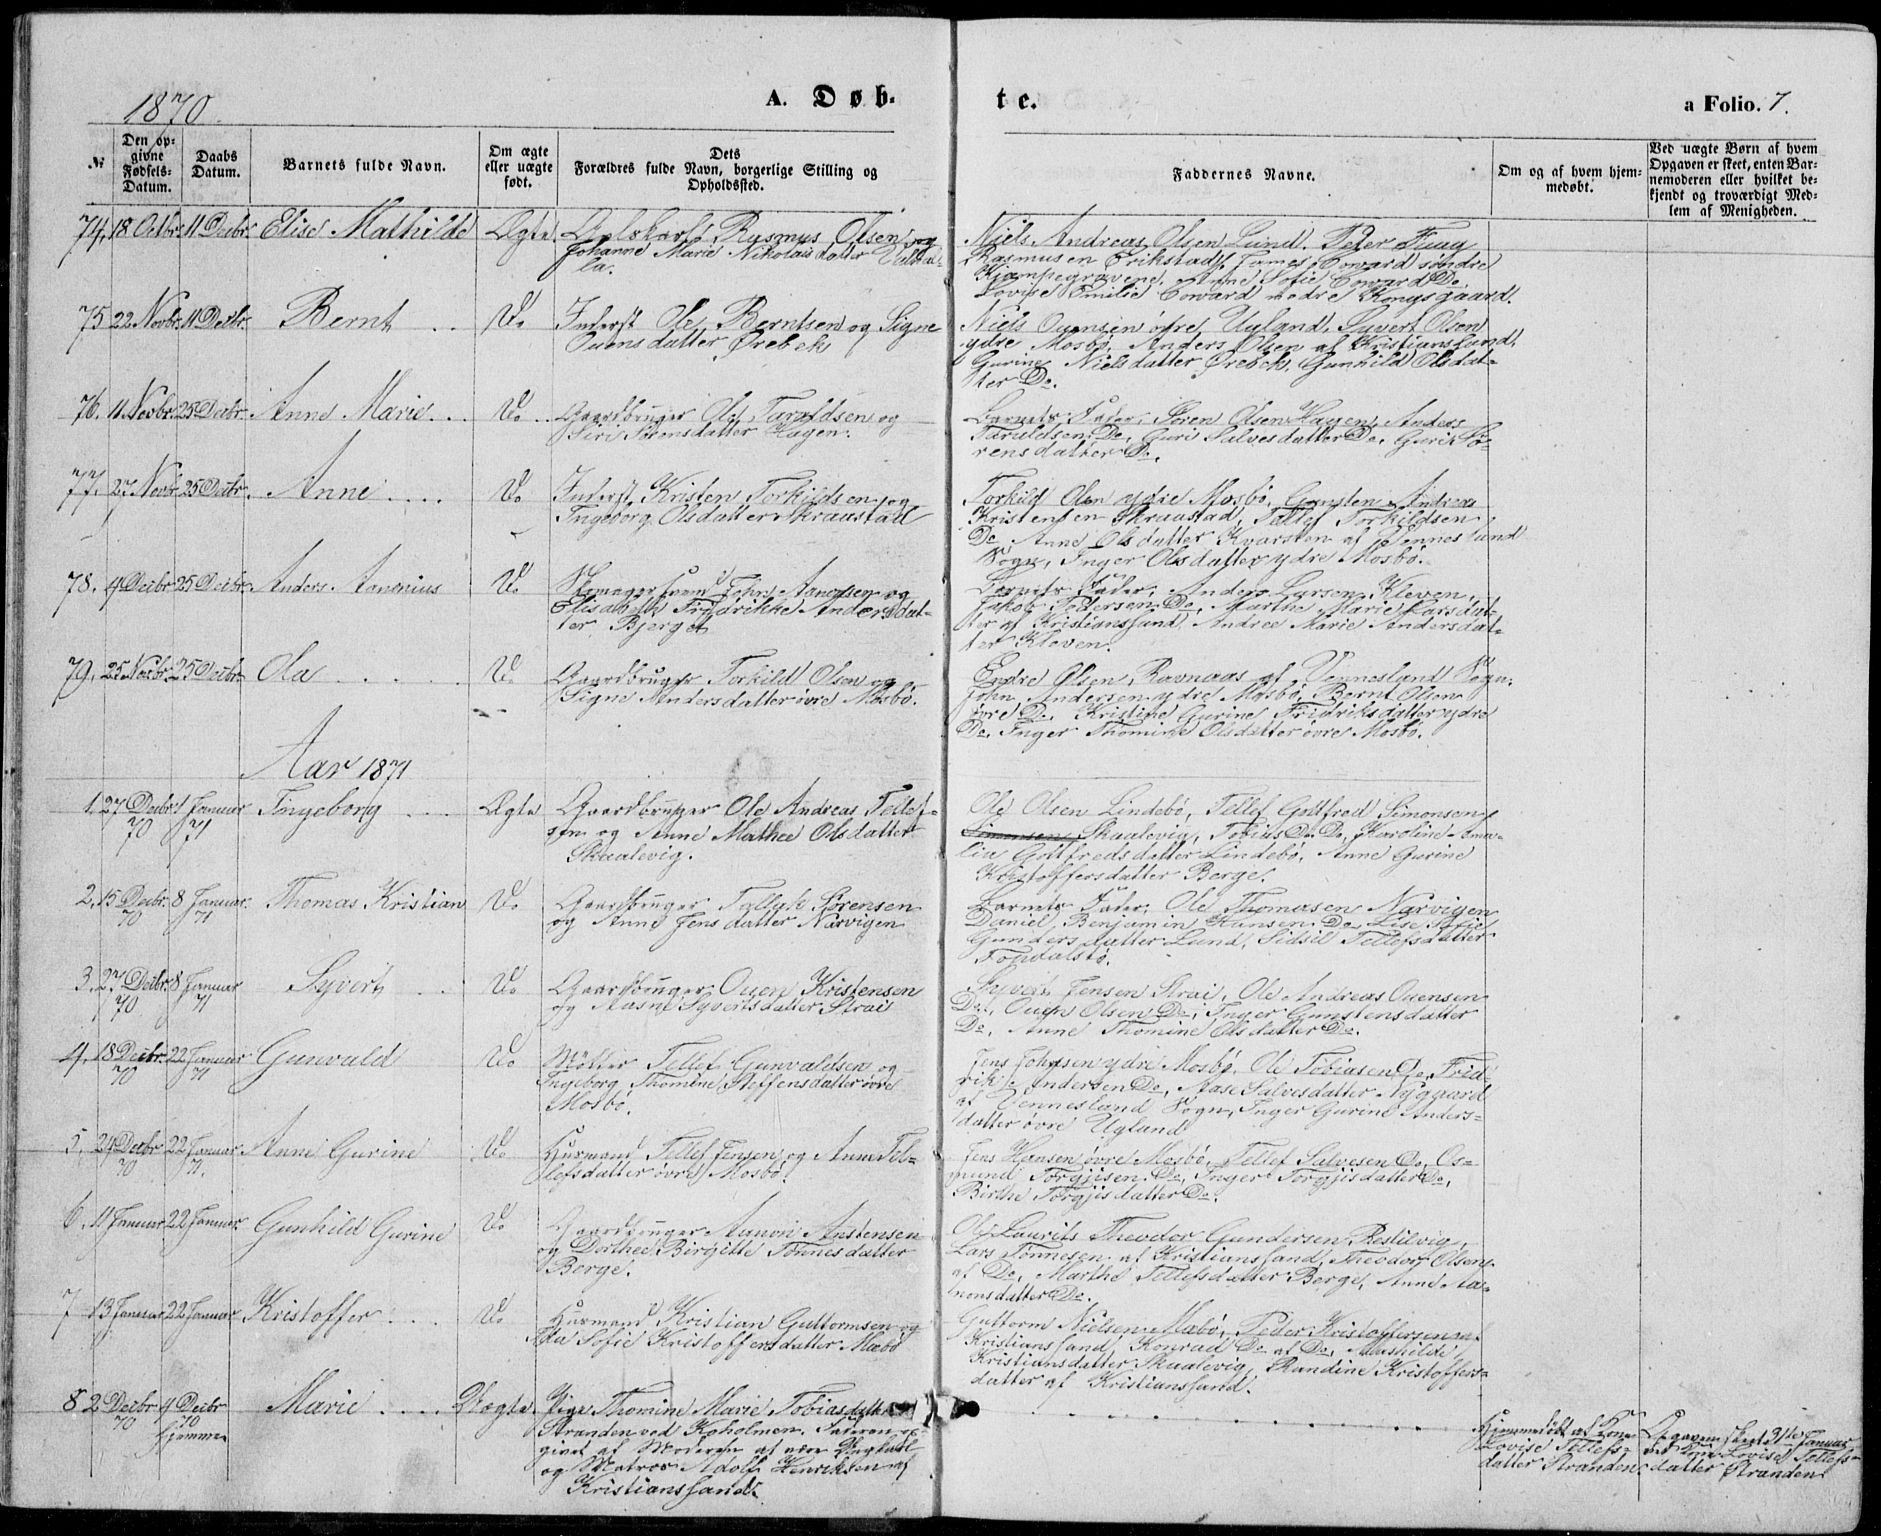 1870.
A. Døb-
te.
a Folio. 7.
№
Den op-
givne
Fødsels-
Datum.
Daabs
Datum.
Barnets fulde Navn.
Om ægte
eller uægte
født.
Dets
Forældres fulde Navn, borgerlige Stilling og
Opholdssted.
Faddernes Navne.
Om og af hvem hjem-
medøbt.
Ved uægte Børn af hvem
Opgaven er skeet, enten Bar-
nemoderen eller hvilket be-
kjendt og troværdigt Med-
lem af Menigheden.
74. 18 Octbr. 11 Decbr. Elise Mathilde Ægte Rasmus Olsen og
Johanne Marie Nikolaisdatter
Niels Andreas Olsen Lund. Peter
Rasmusen Erikstad, James Coward søndre
Kjæmpegravene, Anne Sofie Coward Do
Lovise Emilie Coward nedre Kongsgaard.
75 22 Novbr. 11 Decbr. Bernt Do Inderst Ole Berntsen og Signe
Ouensdatter Ørebek
Niels Ouensen øvre Ugland, Syvert Olsen
ydre Mosbø, Anders Olsen af Kristianssand,
Gurine Nielsdatter Ørebek, Gunhild Olsdat-
ter Do.
76. 11 Novbr. 25 Decbr. Anne Marie Do Gaardbruger Ole Taraldsen og
Siri Sørensdatter Hagen.
Barnets Fader, Søren Olsen Hagen, Anders
Taraldsen Do, Guri Salvesdatter Do, Guri Sø-
rensdatter Do.
77. 27 Novbr. 25 Decbr. Anne Do Inderst Kristen Torkildsen og
Ingeborg Olsdatter Skraustad
Torkild Olsen ydre Mosbø, Gunsten Andreas
Kristensen Skraustad, Tellef Torkildsen
Do Anne Olsdatter Kvarsten af Vennesland
Sogn, Inger Olsdatter ydre Mosbø.
78. 4 Decbr 25 Decbr. Anders Antonius Do Skomagersvend John Aanonsen og
Elisabeth Fredrikke Andersdat-
ter Bjerget
Barnets Fader, Anders Larsen Kleven,
Jakob Pedersen Do, Marthe Marie Larsdat-
ter af Kristianssand, Andrea Marie Andersdat-
ter Kleven.
79. 25 Novbr. 25 Decbr. Ola Do Gaardbruger Torkild Olsen og
Signe Andersdatter øvre Mosbø.
Endre Olsen, Ravnaas af Vennesland Sogn,
John Andersen ydre Mosbø, Bernt Olsen
øvre Do, Kristine Gurine Fridriksdatter ydre
Do, Inger Thomine Olsdatter øvre Mosbø.
Aar 1871
1. 27 Decbr. 70 1 Januar 71 Ingeborg Ægte Gaardbruger Ole Andreas Tellef-
sen og Anne Mathea Olsdatter
Skaalevig.
Ole Olsen Lindebø, Tellef Gottfred Simonsen
Skaalevig, Tobias Do Do, Karoline Ama-
lia Gottfredsdatter Lindebø, Anne Gurine
Kristoffersdatter Berge.
2. 15 Decbr. 70 8 Januar 71 Thomas Kristian Do Gaardbruger Sørensen
og Anne Jensdatter Narvigen
Barnets Fader, Ole Thomasen Narvigen
Daniel Benjamin Hansen Do, Lise Sofie
Gundersdatter Lund, Sidsil Tellefsdatter
3. 27 Decbr. 70 8 Januar 71 Syvert Do Gaardbruger Ouen Kristensen
og Aasne Syvertsdatter Strai
Syvert Jensen Strai, Ole Andreas Ouensen
Do, Ouen Olsen Do, Inger Gunstensdatter
Do, Anne Thomine Olsdatter Do.
4. 18 Decbr. 70 22 Januar 71 Gunvald Do Møller Tellef Gunvaldsen og
Ingeborg Thomine Steffensdatter øvre
Mosbø.
Jens Johnsen ydre Mosbø, Ole Tobiasen Do, Frid-
rik Andersen Do, Aase Salvesdatter Nygaard
af Vennesland Sogn, Inger Gurine Anders-
datter øvre Ugland
5. 24 Decbr 70 22 Januar 71. Anne Gurine Do Husmand Tellef Jensen og Anne Tel-
lefsdatter øvre Mosbø.
Jens Hansen øvre Mosbø, Tellef Salvesen Do, Os-
mund Torgjisen Do, Inger Torgjisdatter Do,
Birthe Torgjisdatter Do.
6. 4 Januar 22 Januar Gunhild Gurine Do Gaardbruger Aanon Anstensen
og Dorthea Birgitte Tønnesdatter
Berge.
Ole Laurits Theodor Gundersen Restilvig,
Lars Tønnesen af Kristianssand, Theodor Olsen
af Do, Marthe Tellefsdatter Berge, Anne Aa-
nonsdatter Do.
7 13 Januar 22 Januar Kristoffer Do Husmand Kristian Guttormsen og
Sofie Kristoffersdatter Mæbø
Guttorm Nielsen Mæbø, Peder Kristoffersen af
Kristianssand, Konrad Do af Do, Mathilde
Kristiansdatter Skaalevig, Randine Kristoffers-
datter af Kristianssand.
8 2 Decbr 70 4 Decbr 70 hjemme Marie Uægte Pige Thomine Marie Tobiasdatter
Stranden ved Koholmen. Faderen op-
givet af Moderen at være Ungkarl
og Matros Adolf Henriksen af
Kristianssand.
Hjemmedøbt af Kone
Lovise Tellefs-
datter Stranden.
Opgaven skeet 31te Januar
ved Kone Lovise Tellefs-
datter Stranden